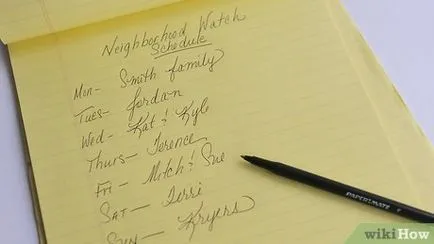 Neighborhood Watch
Schedule
Mon- Smith family
Tues- Jordan
Wed- Kat & Kyle
Thurs- Terence
Fri - Mitch & Sue
Sat - Terri
Sun - Kryers
PAPER:MATE
wikiHow